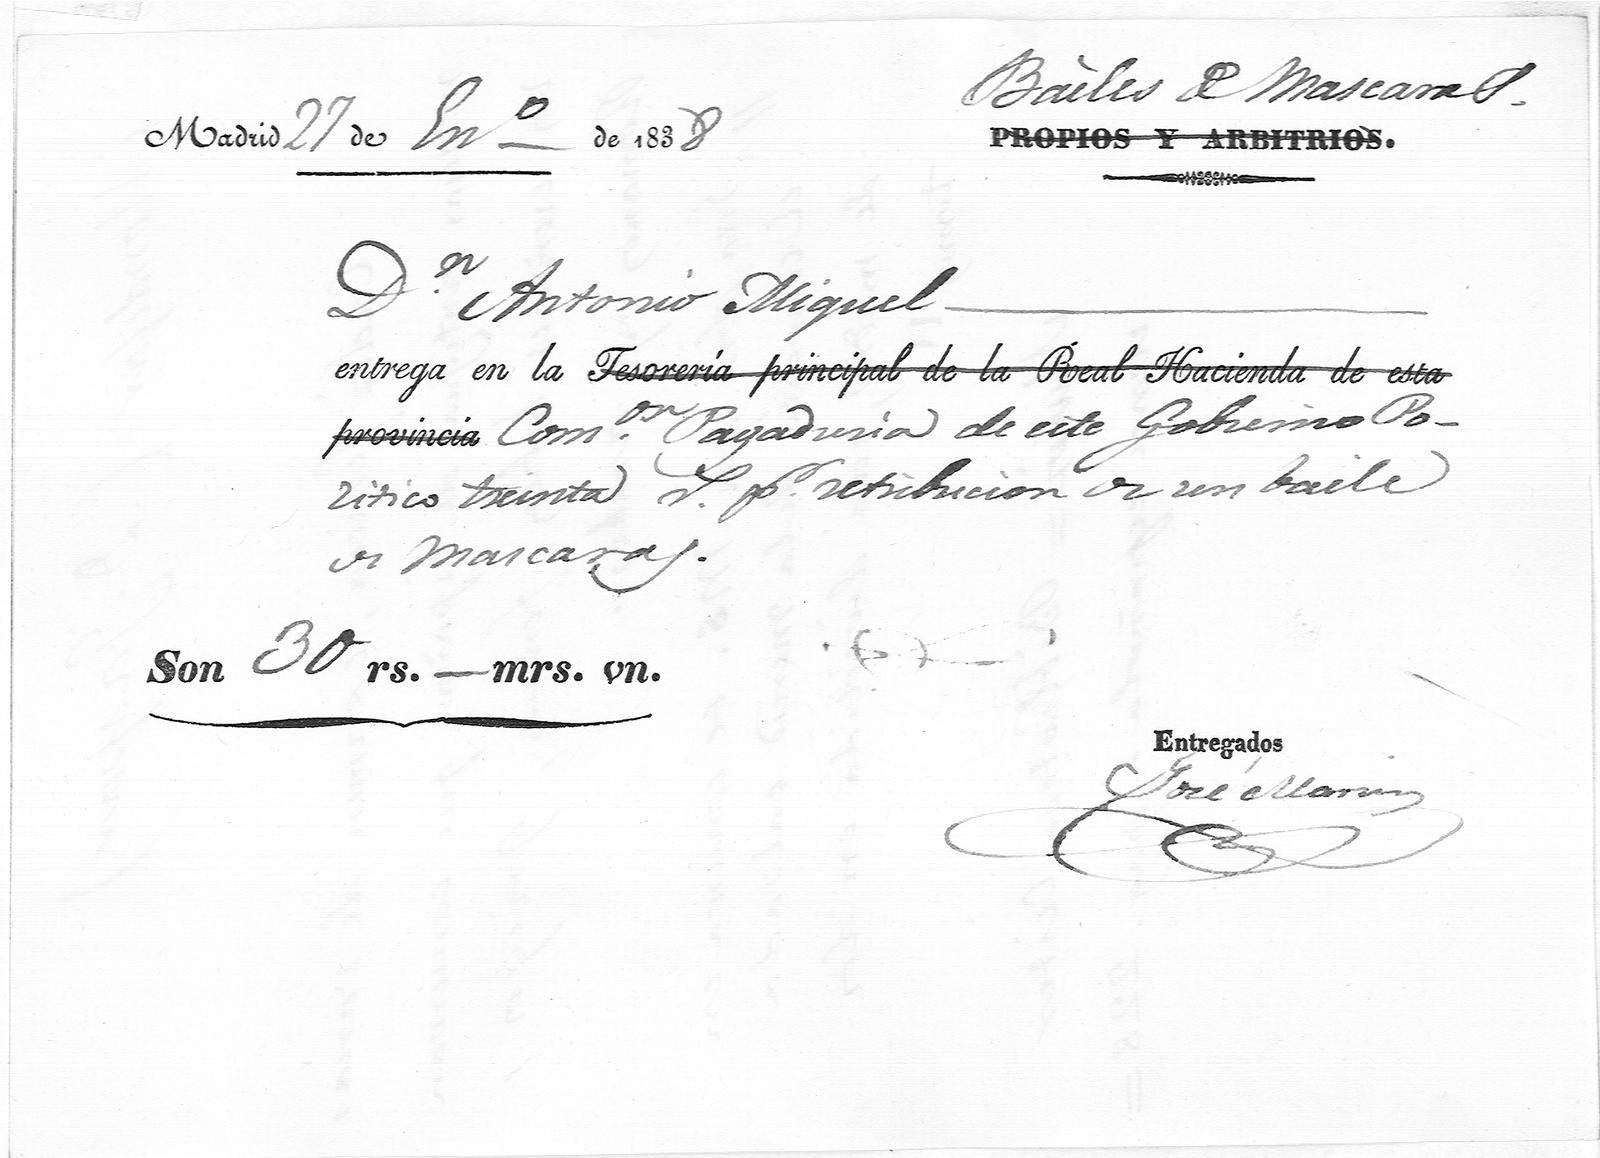 Bailes de Mascaras.
Madrid 27 de En.º de 1838
PROPIOS Y ARBITRIOS.
D.n Antonio Miguel
entrega en la Tesorería principal de la Real Hacienda de esta
provincia Com.on Pagaduria de este Gobierno Po-
litico treinta r.s p.r retribucion de un baile
de Mascaras.
Son 30 rs. — mrs. vn.
Entregados
José Marin